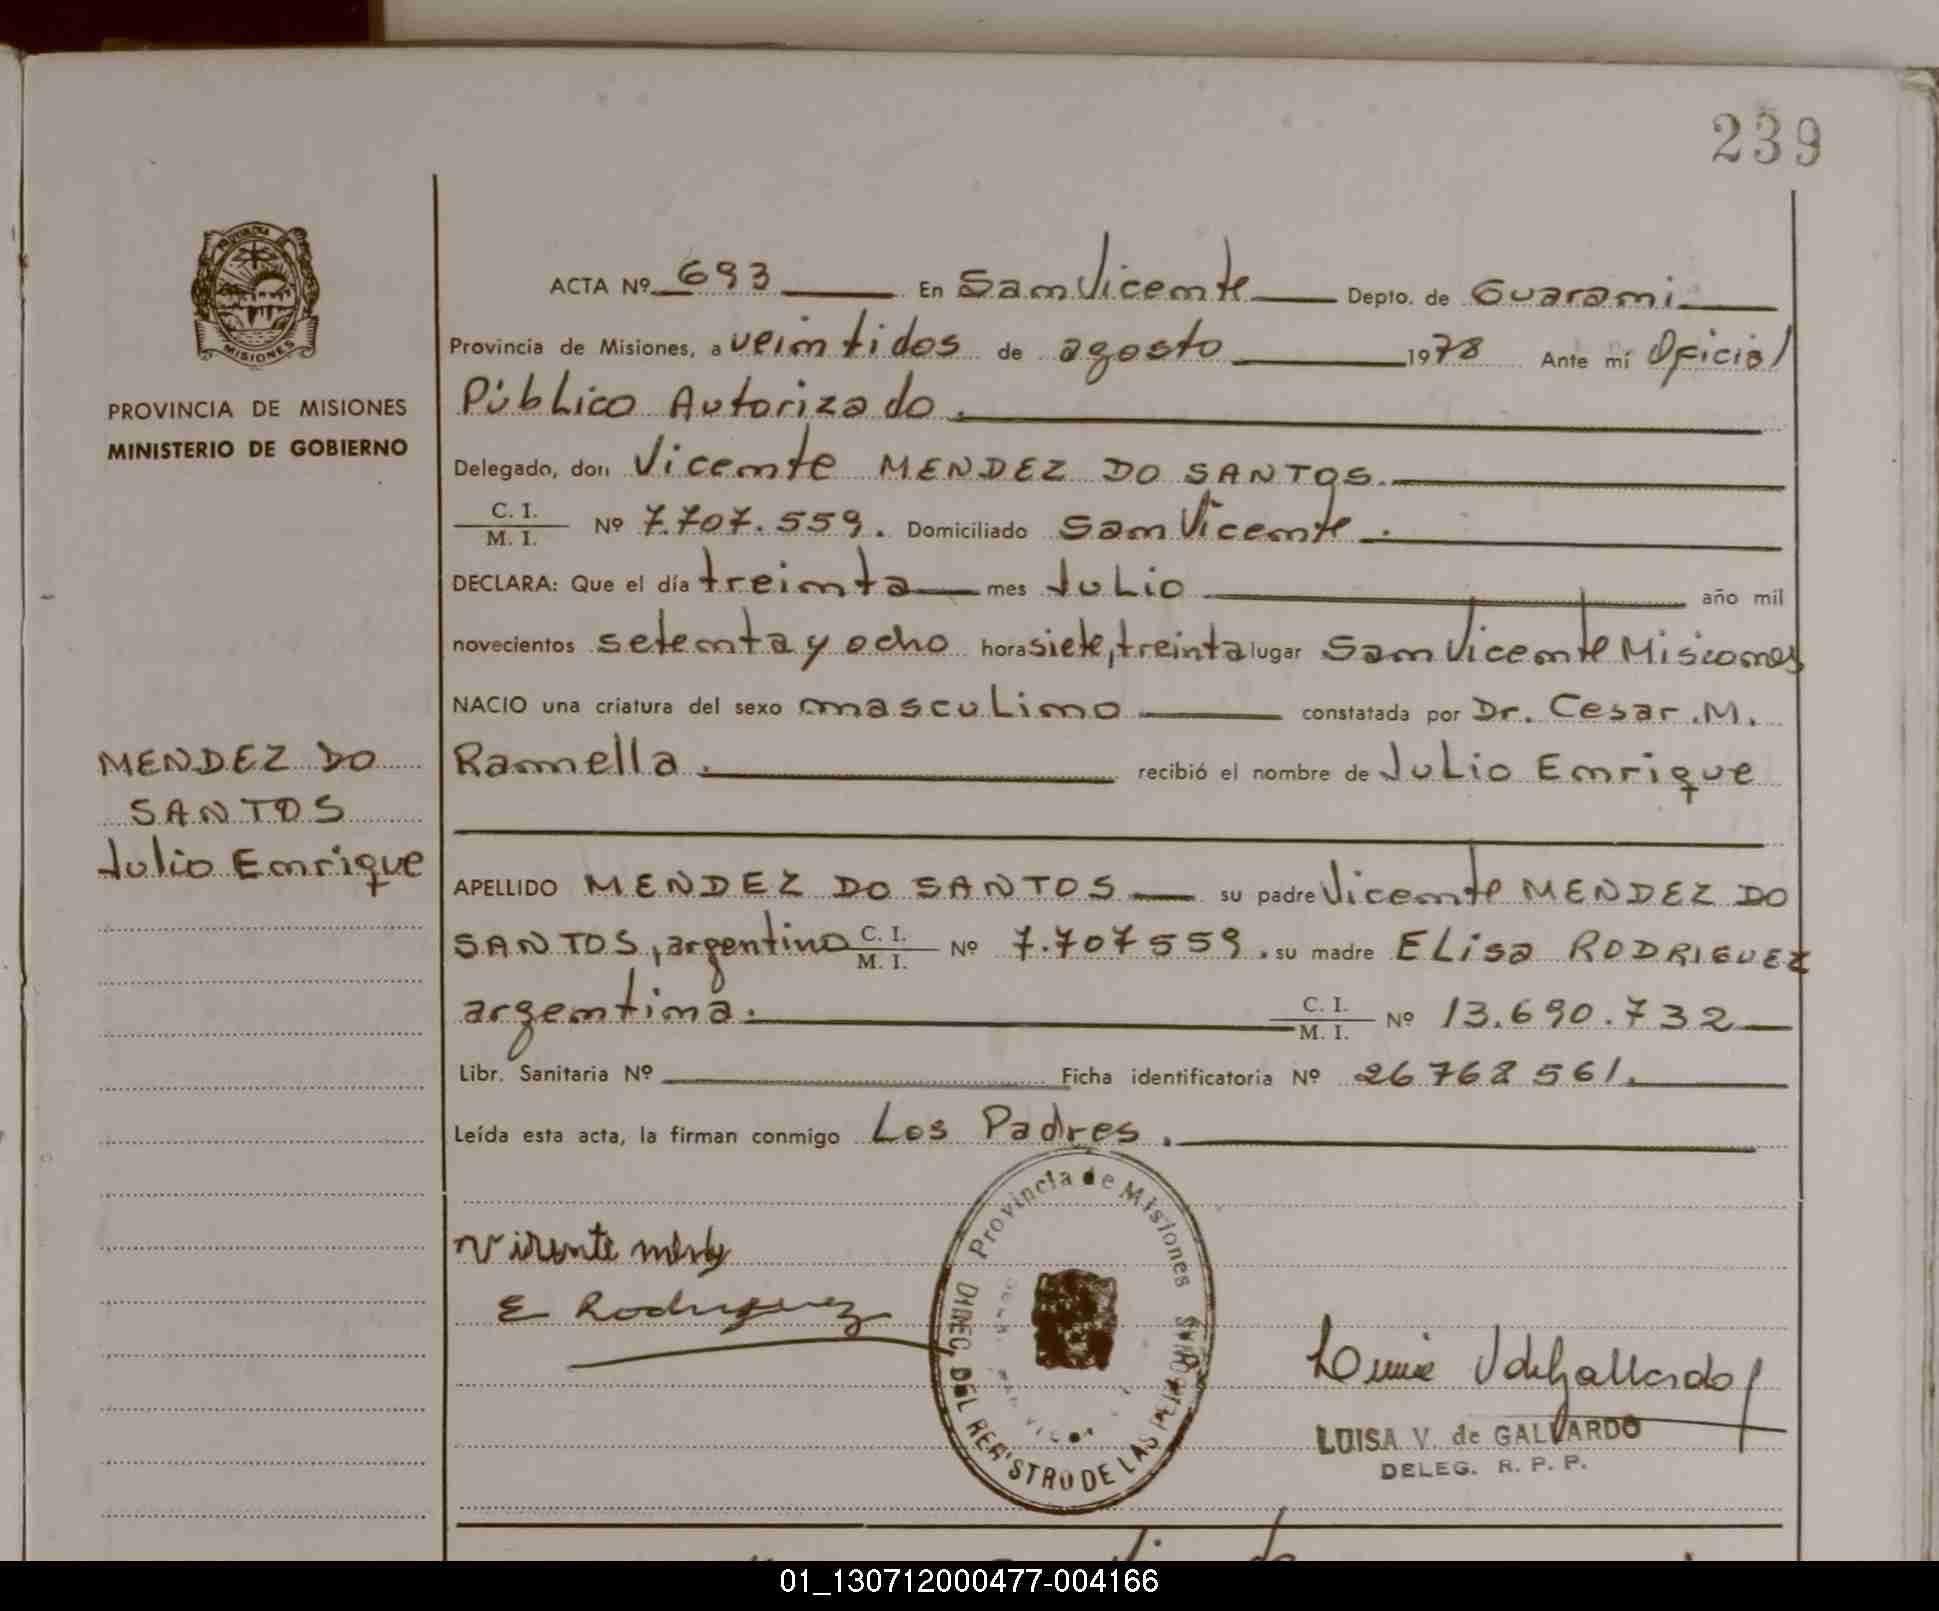 239
ACTA Nº 693 En San Vicente Depto. de Guarani
Provincia de Misiones, a veintidos de agosto 1978 Ante mí Oficial
Público Autorizado.
PROVINCIA DE MISIONES
MINISTERIO DE GOBIERNO
Delegado, don Vicente MENDEZ DO SANTOS.
C. I.
M. I. Nº 7.707.559. Domiciliado San Vicente.
DECLARA: Que el día treinta mes Julio año mil
novecientos setenta y ocho hora siete, treinta lugar San Vicente Misiones
NACIO una criatura del sexo masculino constatada por Dr. Cesar. M.
Ramella. recibió el nombre de Julio Enrique
MENDEZ DO
SANTOS
Julio Enrique
APELLIDO MENDEZ DO SANTOS su padre Vicente MENDEZ DO
SANTOS, argentino C. I. M. I. Nº 7.707559. su madre ELisa RODRIGUEZ
argentina. C. I. M. I. Nº 13.690.732
Libr. Sanitaria Nº Ficha identificatoria Nº 26762561.
Leída esta acta, la firman conmigo Los Padres.
Provincia de Misiones
DIREC. DEL REGISTRO DE LAS PERSONAS
E Rodriguez
LUISA V. de GALLARDO
DELEG. R. P. P.
01_130712000477-004166